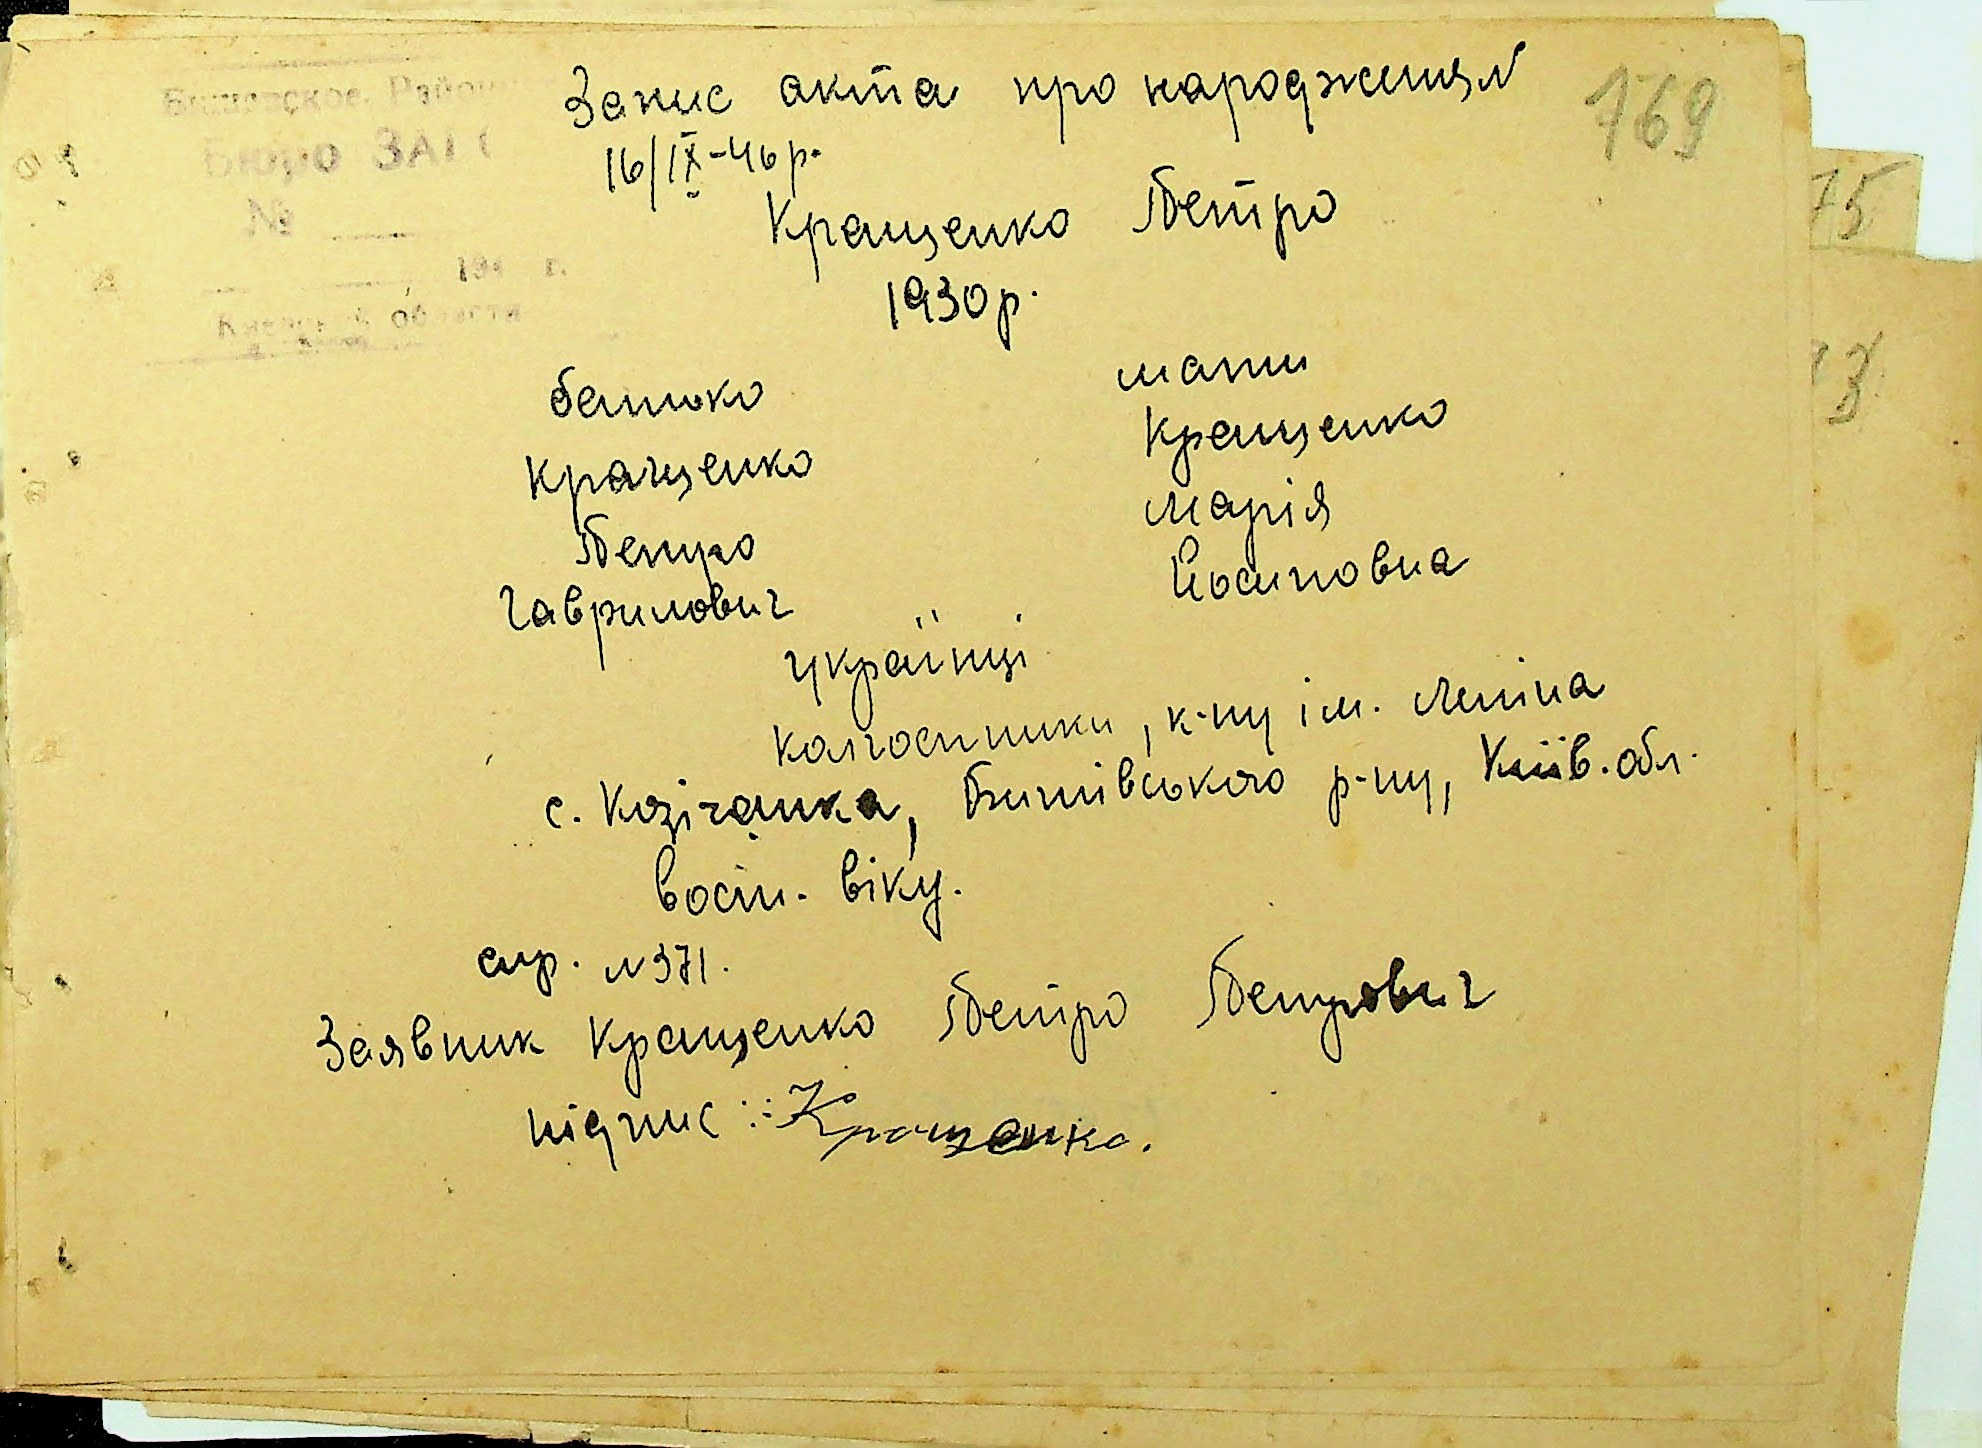 Бишевское Район
Бюро ЗАГС
№
194 г.
Киевской области
Запис акта про народження
169
16/IX-46 р.
Кращенко Петро
1930 р.
батько
мати
Кращенко
Кращенко
Петро
Марія
Гаврилович
Йосиповна
Українці
Колгоспники, к-пу ім. Леніна
с. Козічанка, Бишівського р-ну, Київ. обл.
восп. віку.
спр. №371.
Заявник Кращенко Петро Петрович
підпис: Кращенко.
75